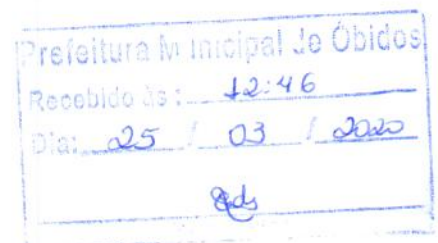 Prefeitura Municipal de Óbidos
Recebido às: 12:46
Dia: 25 / 03 / 2020